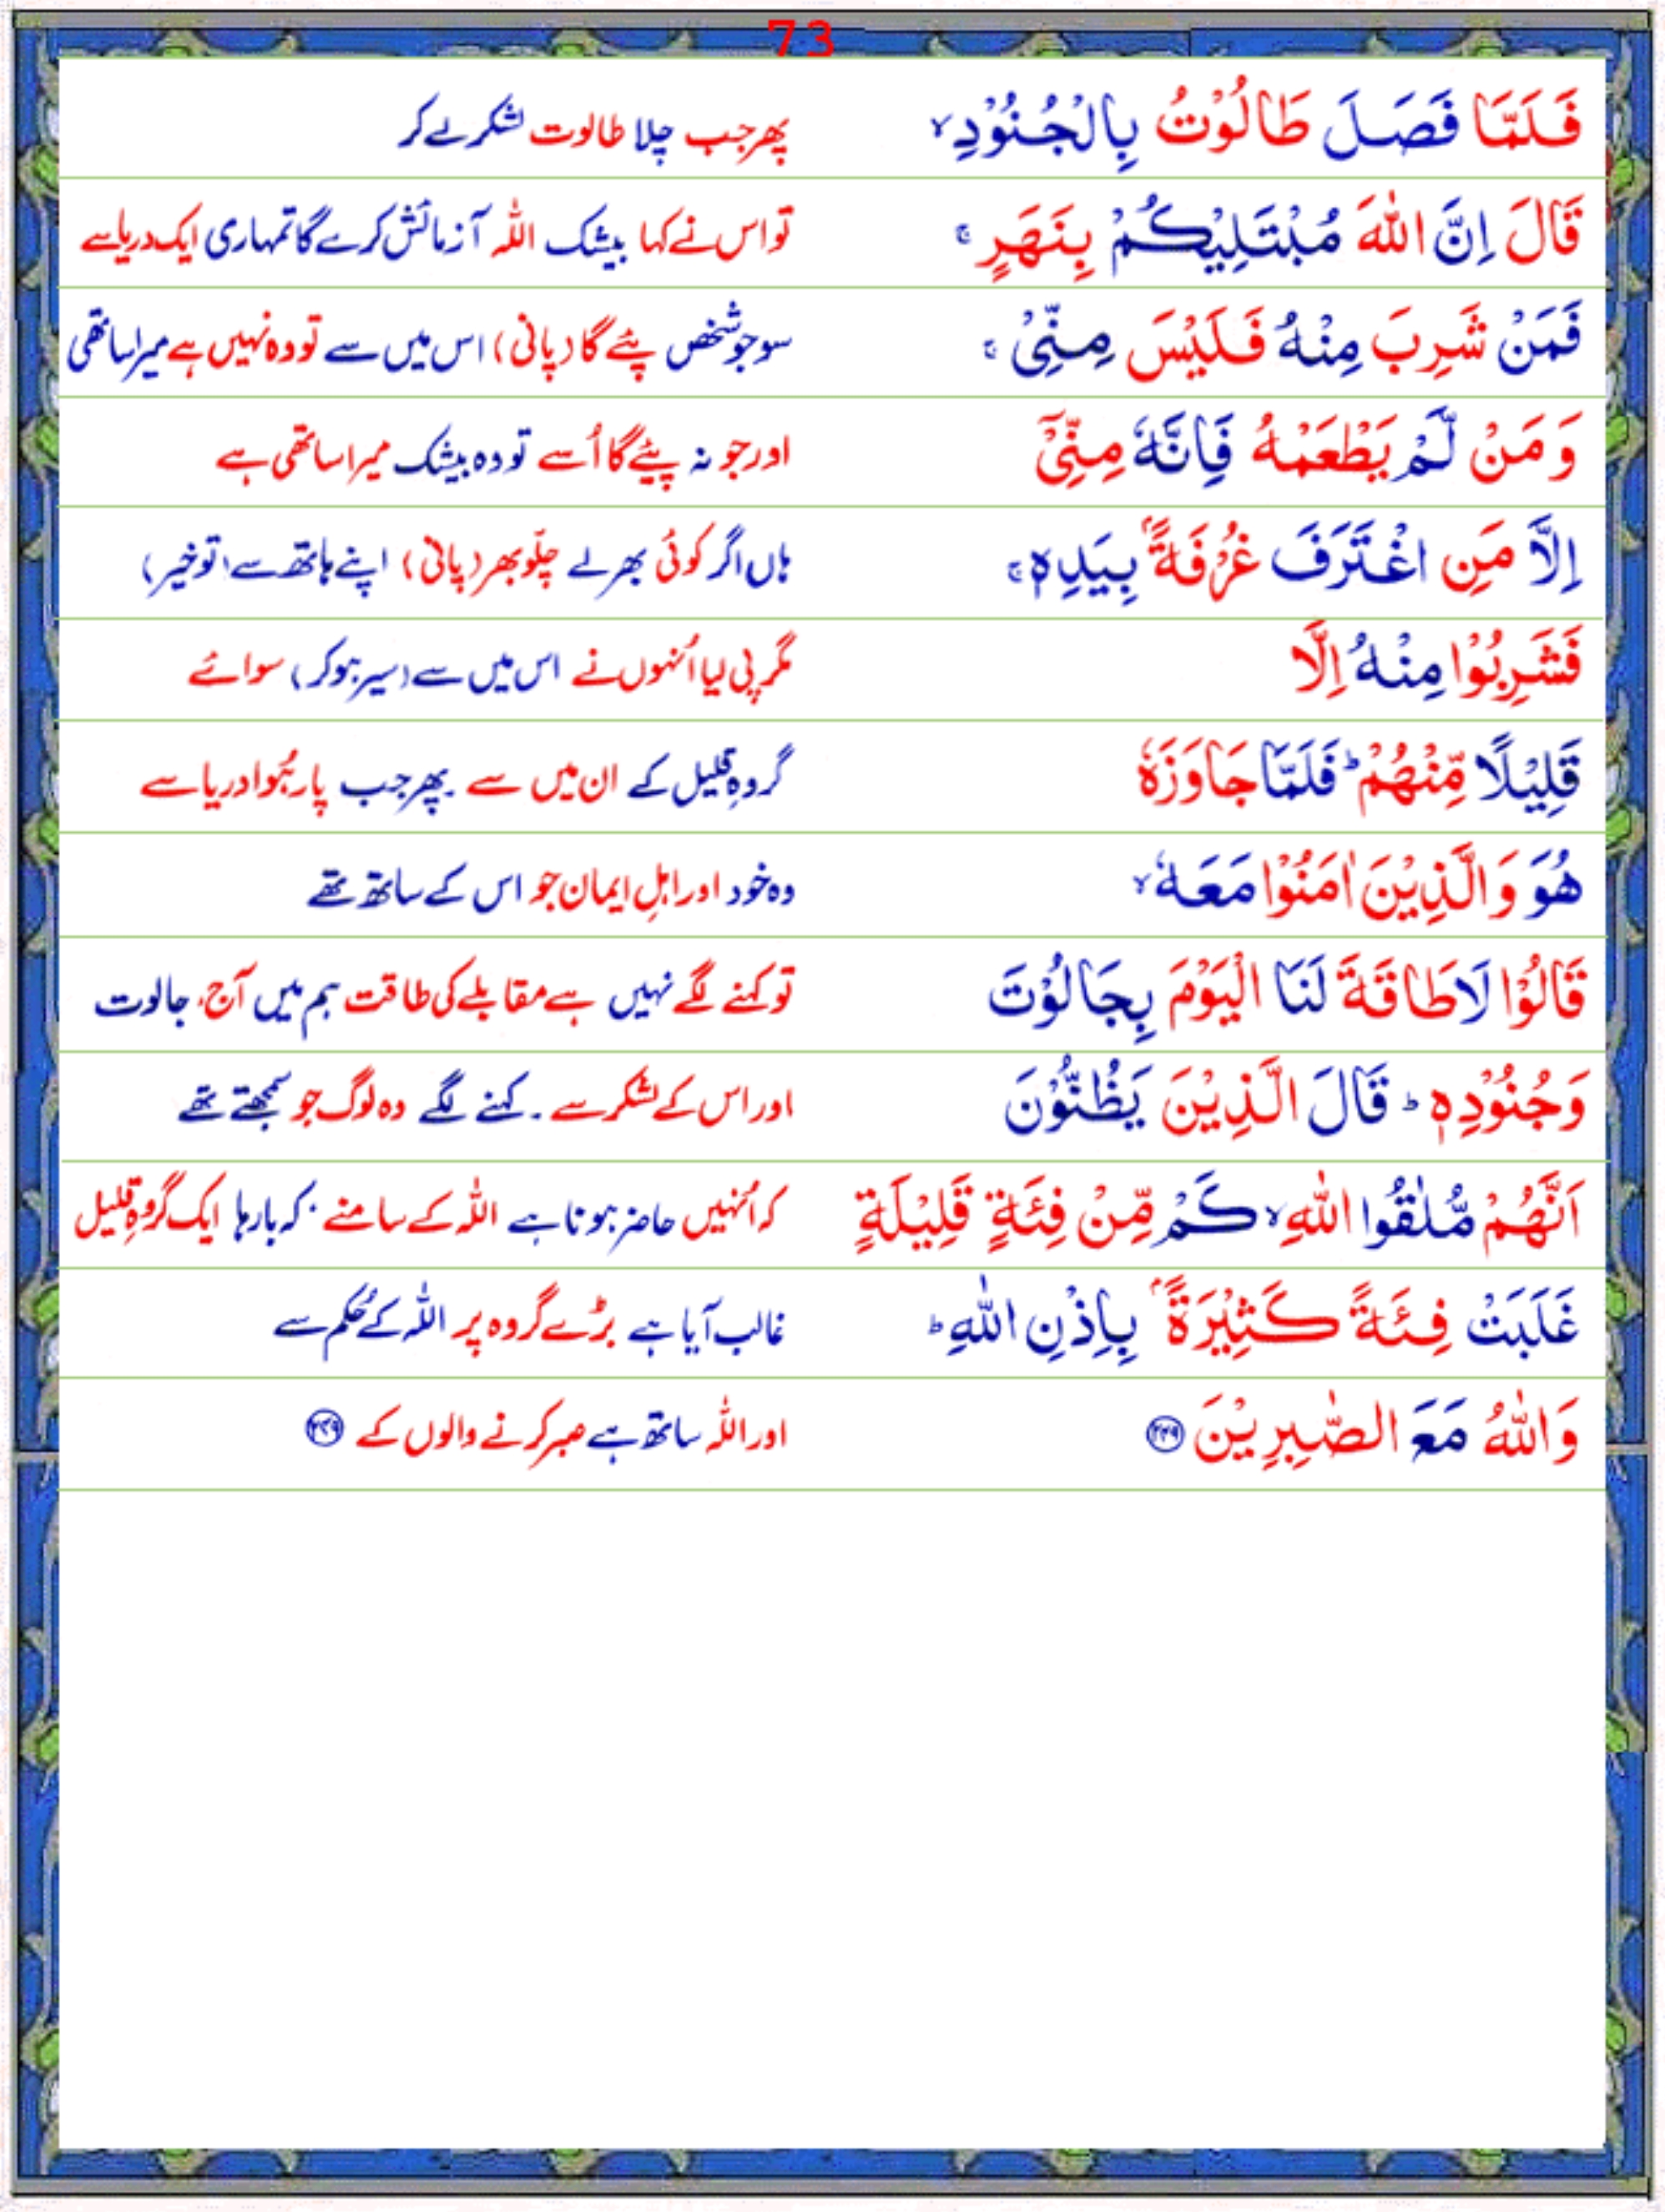 73
فَلَمَّا فَصَلَ طَالُوْتُ بِالْجُنُوْدِ ۙ پھر جب چلا طالوت لشکر لے کر
قَالَ اِنَّ اللّٰهَ مُبْتَلِيْكُمْ بِنَهَرٍ ۚ تو اس نے کہا بیشک اللہ آزمائش کرے گا تمہاری ایک دریا سے
فَمَنْ شَرِبَ مِنْهُ فَلَيْسَ مِنِّىْ ۚ سو جو شخص پئے گا (پانی) اس میں سے تو وہ نہیں ہے میرا ساتھی
وَمَنْ لَّمْ يَطْعَمْهُ فَاِنَّهٗ مِنِّىْٓ اور جو نہ پئے گا اُسے تو وہ بیشک میرا ساتھی ہے
اِلَّا مَنِ اغْتَرَفَ غُرْفَةًۢ بِيَدِهٖ ۚ ہاں اگر کوئی بھر لے چلّو بھر (پانی) اپنے ہاتھ سے (تو خیر)
فَشَرِبُوْا مِنْهُ اِلَّا مگر پی لیا اُنہوں نے اس میں سے (سیر ہو کر) سوائے
قَلِيْلًا مِّنْهُمْ ؕ فَلَمَّا جَاوَزَهٗ گروہِ قلیل کے ان میں سے ۔ پھر جب پار ہُوا دریا سے
هُوَ وَالَّذِيْنَ اٰمَنُوْا مَعَهٗ ۙ وہ خود اور اہلِ ایمان جو اس کے ساتھ تھے
قَالُوْا لَا طَاقَةَ لَنَا الْيَوْمَ بِجَالُوْتَ تو کہنے لگے نہیں ہے مقابلے کی طاقت ہم میں آج، جالوت
وَجُنُوْدِهٖ ؕ قَالَ الَّذِيْنَ يَظُنُّوْنَ اور اس کے لشکر سے ۔ کہنے لگے وہ لوگ جو سمجھتے تھے
اَنَّهُمْ مُّلٰقُوا اللّٰهِ ۙ كَمْ مِّنْ فِئَةٍ قَلِيْلَةٍ کہ اُنہیں حاضر ہونا ہے اللہ کے سامنے، کہ بارہا ایک گروہِ قلیل
غَلَبَتْ فِئَةً كَثِيْرَةًۢ بِاِذْنِ اللّٰهِ ؕ غالب آیا ہے بڑے گروہ پر اللہ کے حُکم سے
وَاللّٰهُ مَعَ الصّٰبِرِيْنَ ۲۴۹ اور اللہ ساتھ ہے صبر کرنے والوں کے ۲۴۹